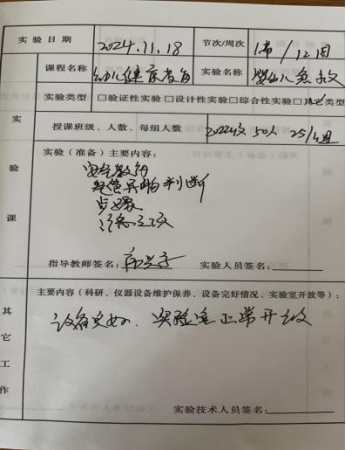 实验日期 2024.11.18 节次/周次 1节/12周
课程名称 幼儿健康教育 实验名称 婴幼儿急救
实验类型 □验证性实验 □设计性实验 □综合性实验 □其它类型
授课班级、人数、每组人数 50人 25/组
实验课
实验（准备）主要内容：
气管异物判断
步骤
指导教师签名： 实验人员签名：
其它工作
主要内容（科研、仪器设备维护保养、设备完好情况、实验室开放等）：
设备完好．实验室正常开放
实验技术人员签名：